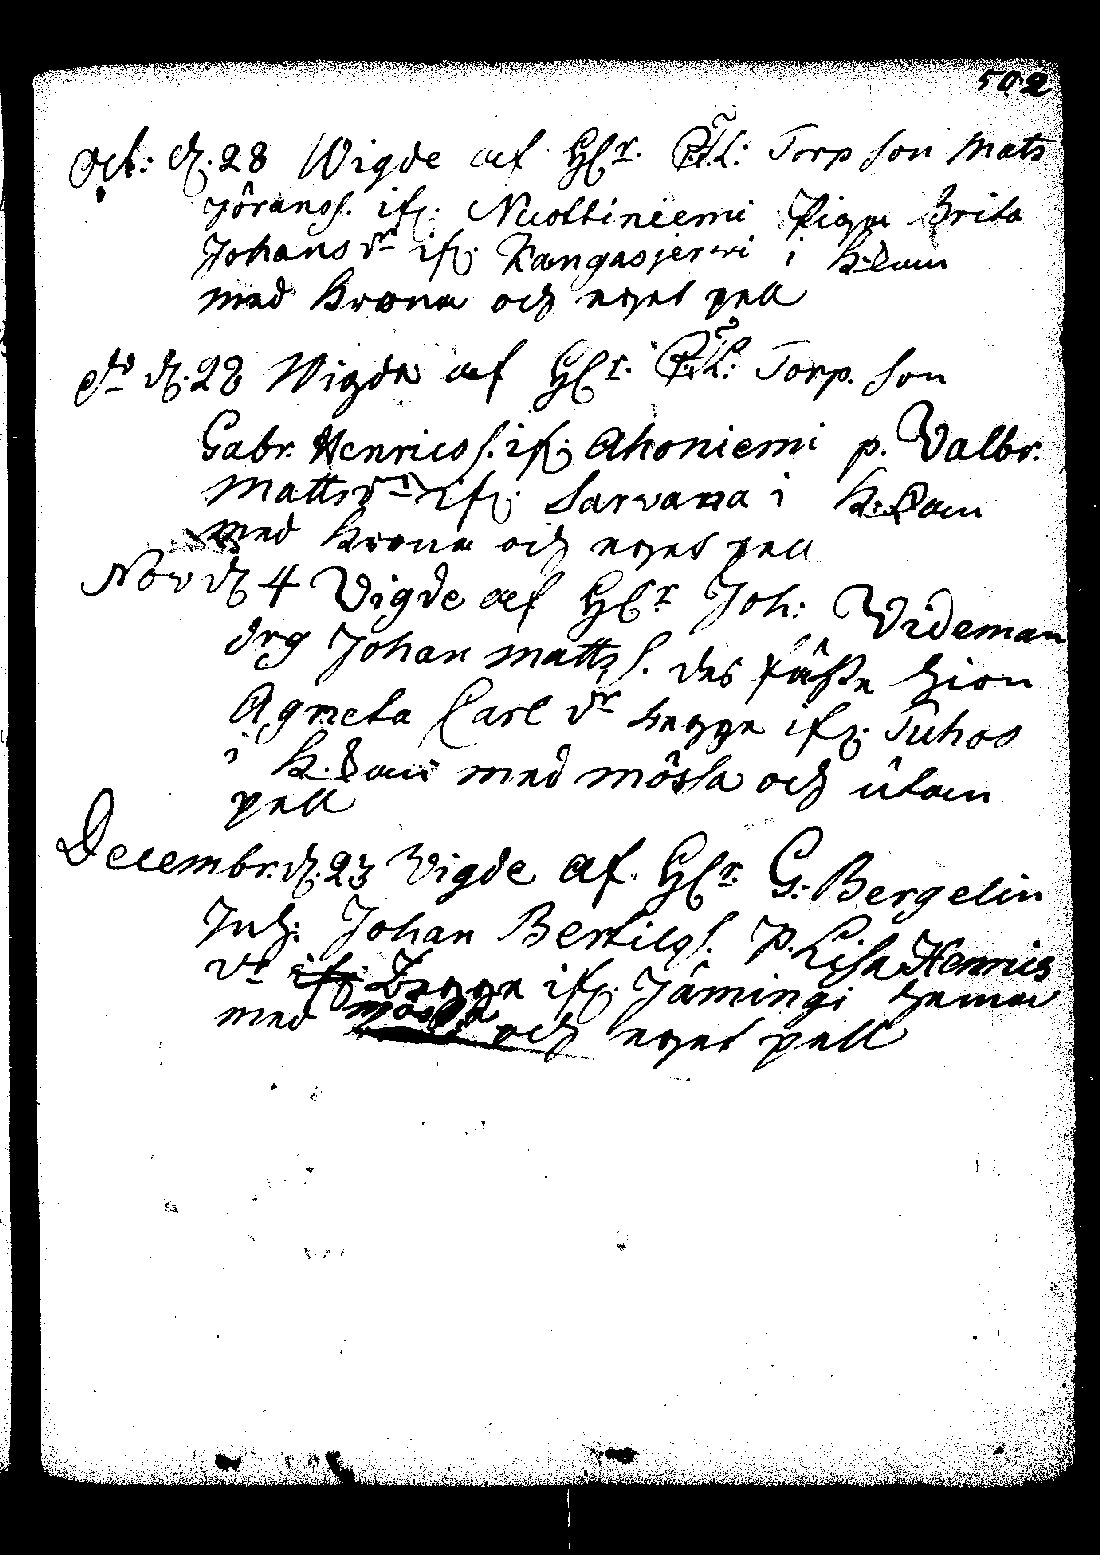 502
Oct: d. 28 Wigde af H:r Torp son Mats
Jörans. ifr. Nuottiniemi Pigan Brita
Johansdr ifr. Kangasjerwi i K:kan
med krona och eget pell
do d. 28 Wigde af H:r Torp. son
Gabr. Henrics. ifr. Ahoniemi p. Valbr.
Mattsdr ifr. Sarvana i K:kan
med krona och eget pell
Nov d. 4 Vigde af H:r Joh: Wideman
drg Johan Matts. des fäste hion
Agneta Carl dr begge ifr. Tuhos
i K:kan med mössa och utan
pell
Decembr. d. 23 Vigde af H:r G: Bergelin
Inh: Johan Bertils. P. Lisa Henrics
dr begge ifr. Jämingi hemma
med mössa och eget pell